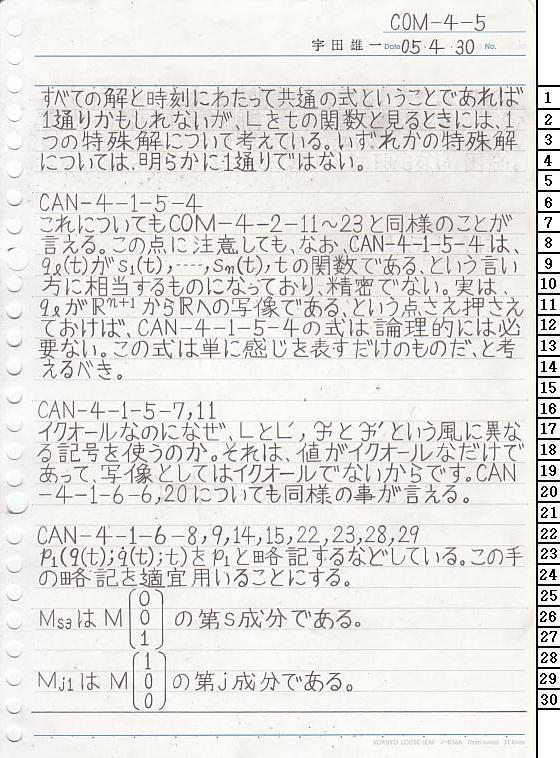 COM-4-5
宇田雄一 Date 05・4・30 No.
すべての解と時刻にわたって共通の式ということであれば
1通りかもしれないが、Lをtの関数と見るときには、1
つの特殊解について考えている。いずれかの特殊解
については、明らかに1通りではない。
CAN-4-1-5-4
これについてもCOM-4-2-11~23と同様のことが
言える。この点に注意しても、なお、CAN-4-1-5-4は、
qℓ(t)がS1(t),----,Sm(t),tの関数である、という言い
方に相当するものになっており、精密でない。実は、
qℓがℝⁿ⁺¹からℝへの写像である、という点さえ押さえ
ておけば、CAN-4-1-5-4の式は論理的には必
要ない。この式は単に感じを表すだけのものだ、と考
えるべき。
CAN-4-1-5-7,11
イクオールなのになぜ、LとL′,ℋとℋ′という風に異な
る記号を使うのか。それは、値がイクオールなだけで
あって、写像としてはイクオールでないからです。CAN
-4-1-6-6,20についても同様の事が言える。
CAN-4-1-6-8,9,14,15,22,23,28,29
P1(q(t);q̇(t);t)をP1と略記するなどしている。この手
の略記を適宜用いることにする。
Ms3はM(0 0 1)の第s成分である。
Mj1はM(1 0 0)の第j成分である。
KOKUYO LOOSE-LEAF ノ-836A 7mm ruled 31 lines
1
2
3
4
5
6
7
8
9
10
11
12
13
14
15
16
17
18
19
20
21
22
23
24
25
26
27
28
29
30